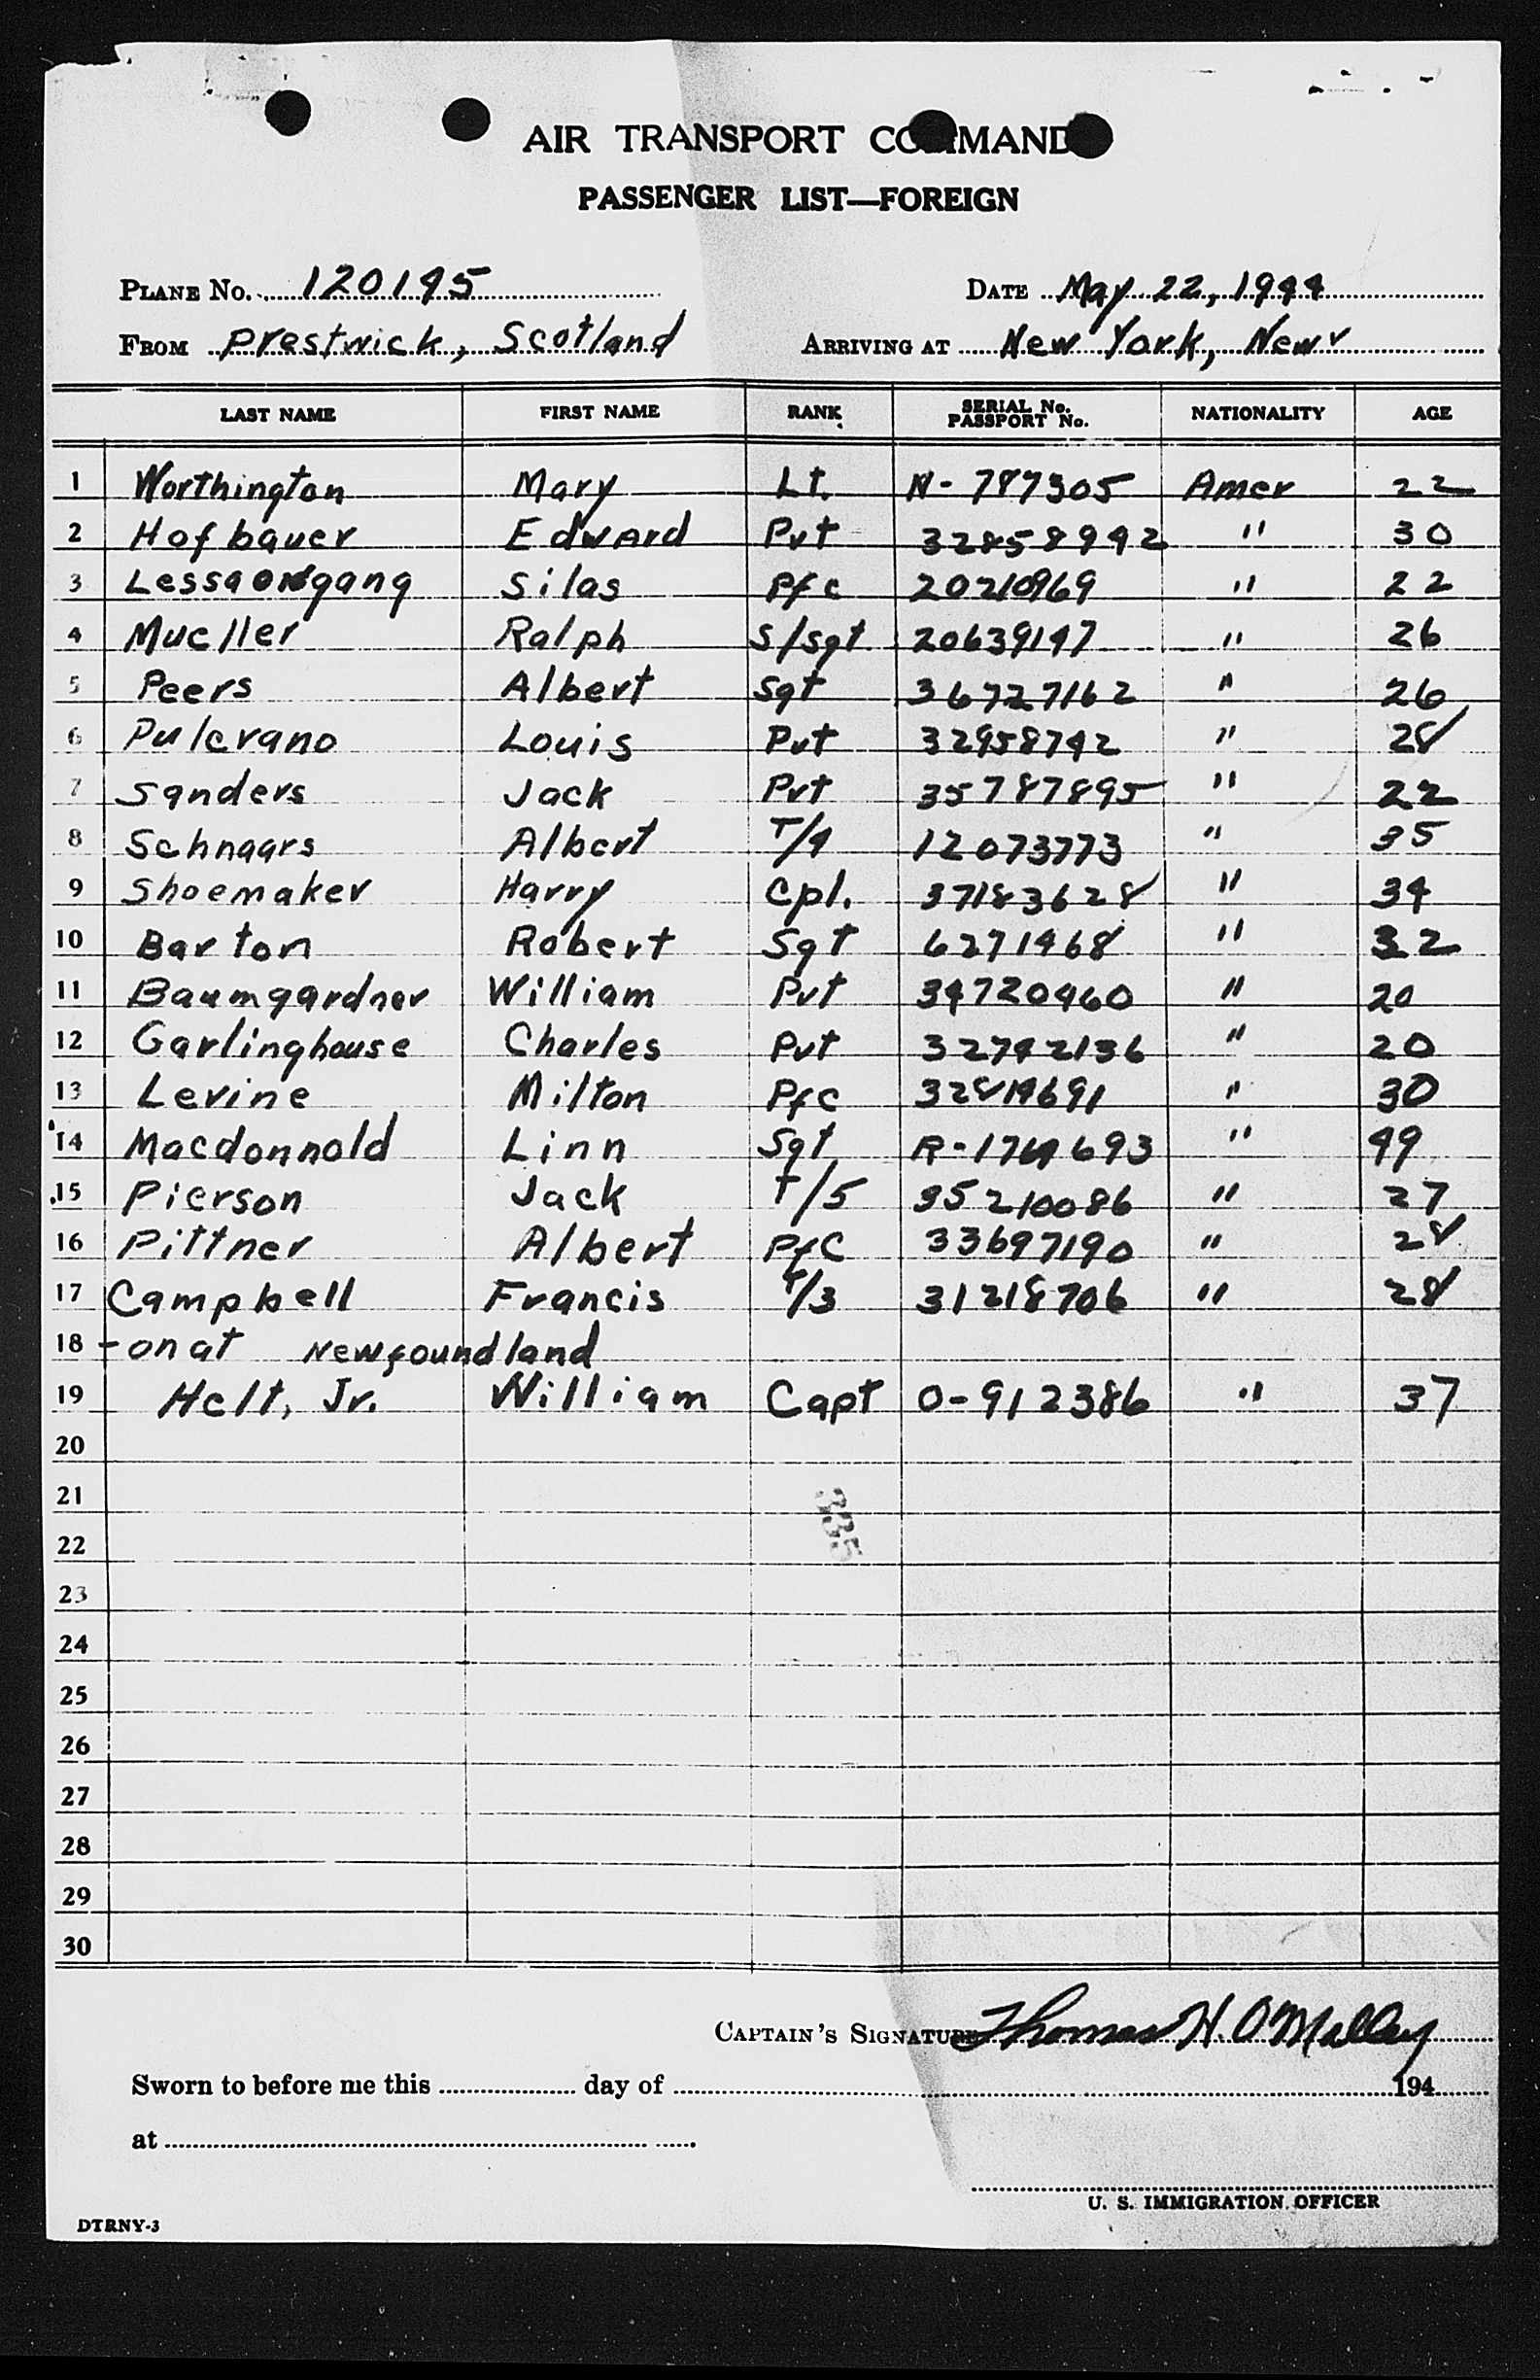 AIR TRANSPORT COMMAND
PASSENGER LIST—FOREIGN
PLANE No. 120195 DATE May 22, 1944
FROM Prestwick, Scotland ARRIVING AT New York, New Y
LAST NAME FIRST NAME RANK SERIAL No. PASSPORT No. NATIONALITY AGE
1 Worthington Mary Lt. N-787305 Amer 22
2 Hofbauer Edward Pvt 32858942 " 30
3 Silas Pfc 20210969 " 22
4 Mueller Ralph S/Sgt 20639147 " 26
5 Peers Albert Sgt 36727162 " 26
6 Pulcrano Louis Pvt 32958742 " 28
7 Sanders Jack Pvt 35787895 " 22
8 Schnaars Albert T/4 12073773 " 35
9 Shoemaker Harry Cpl. 37183628 " 34
10 Barton Robert Sgt 6271468 " 32
11 Baumgardner William Pvt 34720460 " 20
12 Garlinghouse Charles Pvt 32742136 " 20
13 Levine Milton Pfc " 30
14 Macdonnold Linn Sgt " 49
15 Pierson Jack T/5 35210086 " 27
16 Pittner Albert Pfc 33697190 " 28
17 Campbell Francis T/3 31218706 " 28
18 - on at Newfoundland
19 Helt, Jr. William Capt O-912386 " 37
20
21
335
22
23
24
25
26
27
28
29
30
CAPTAIN'S SIGNATURE Thomas H. O'Malley
Sworn to before me this day of 194
at
U. S. IMMIGRATION OFFICER
DTRNY-3